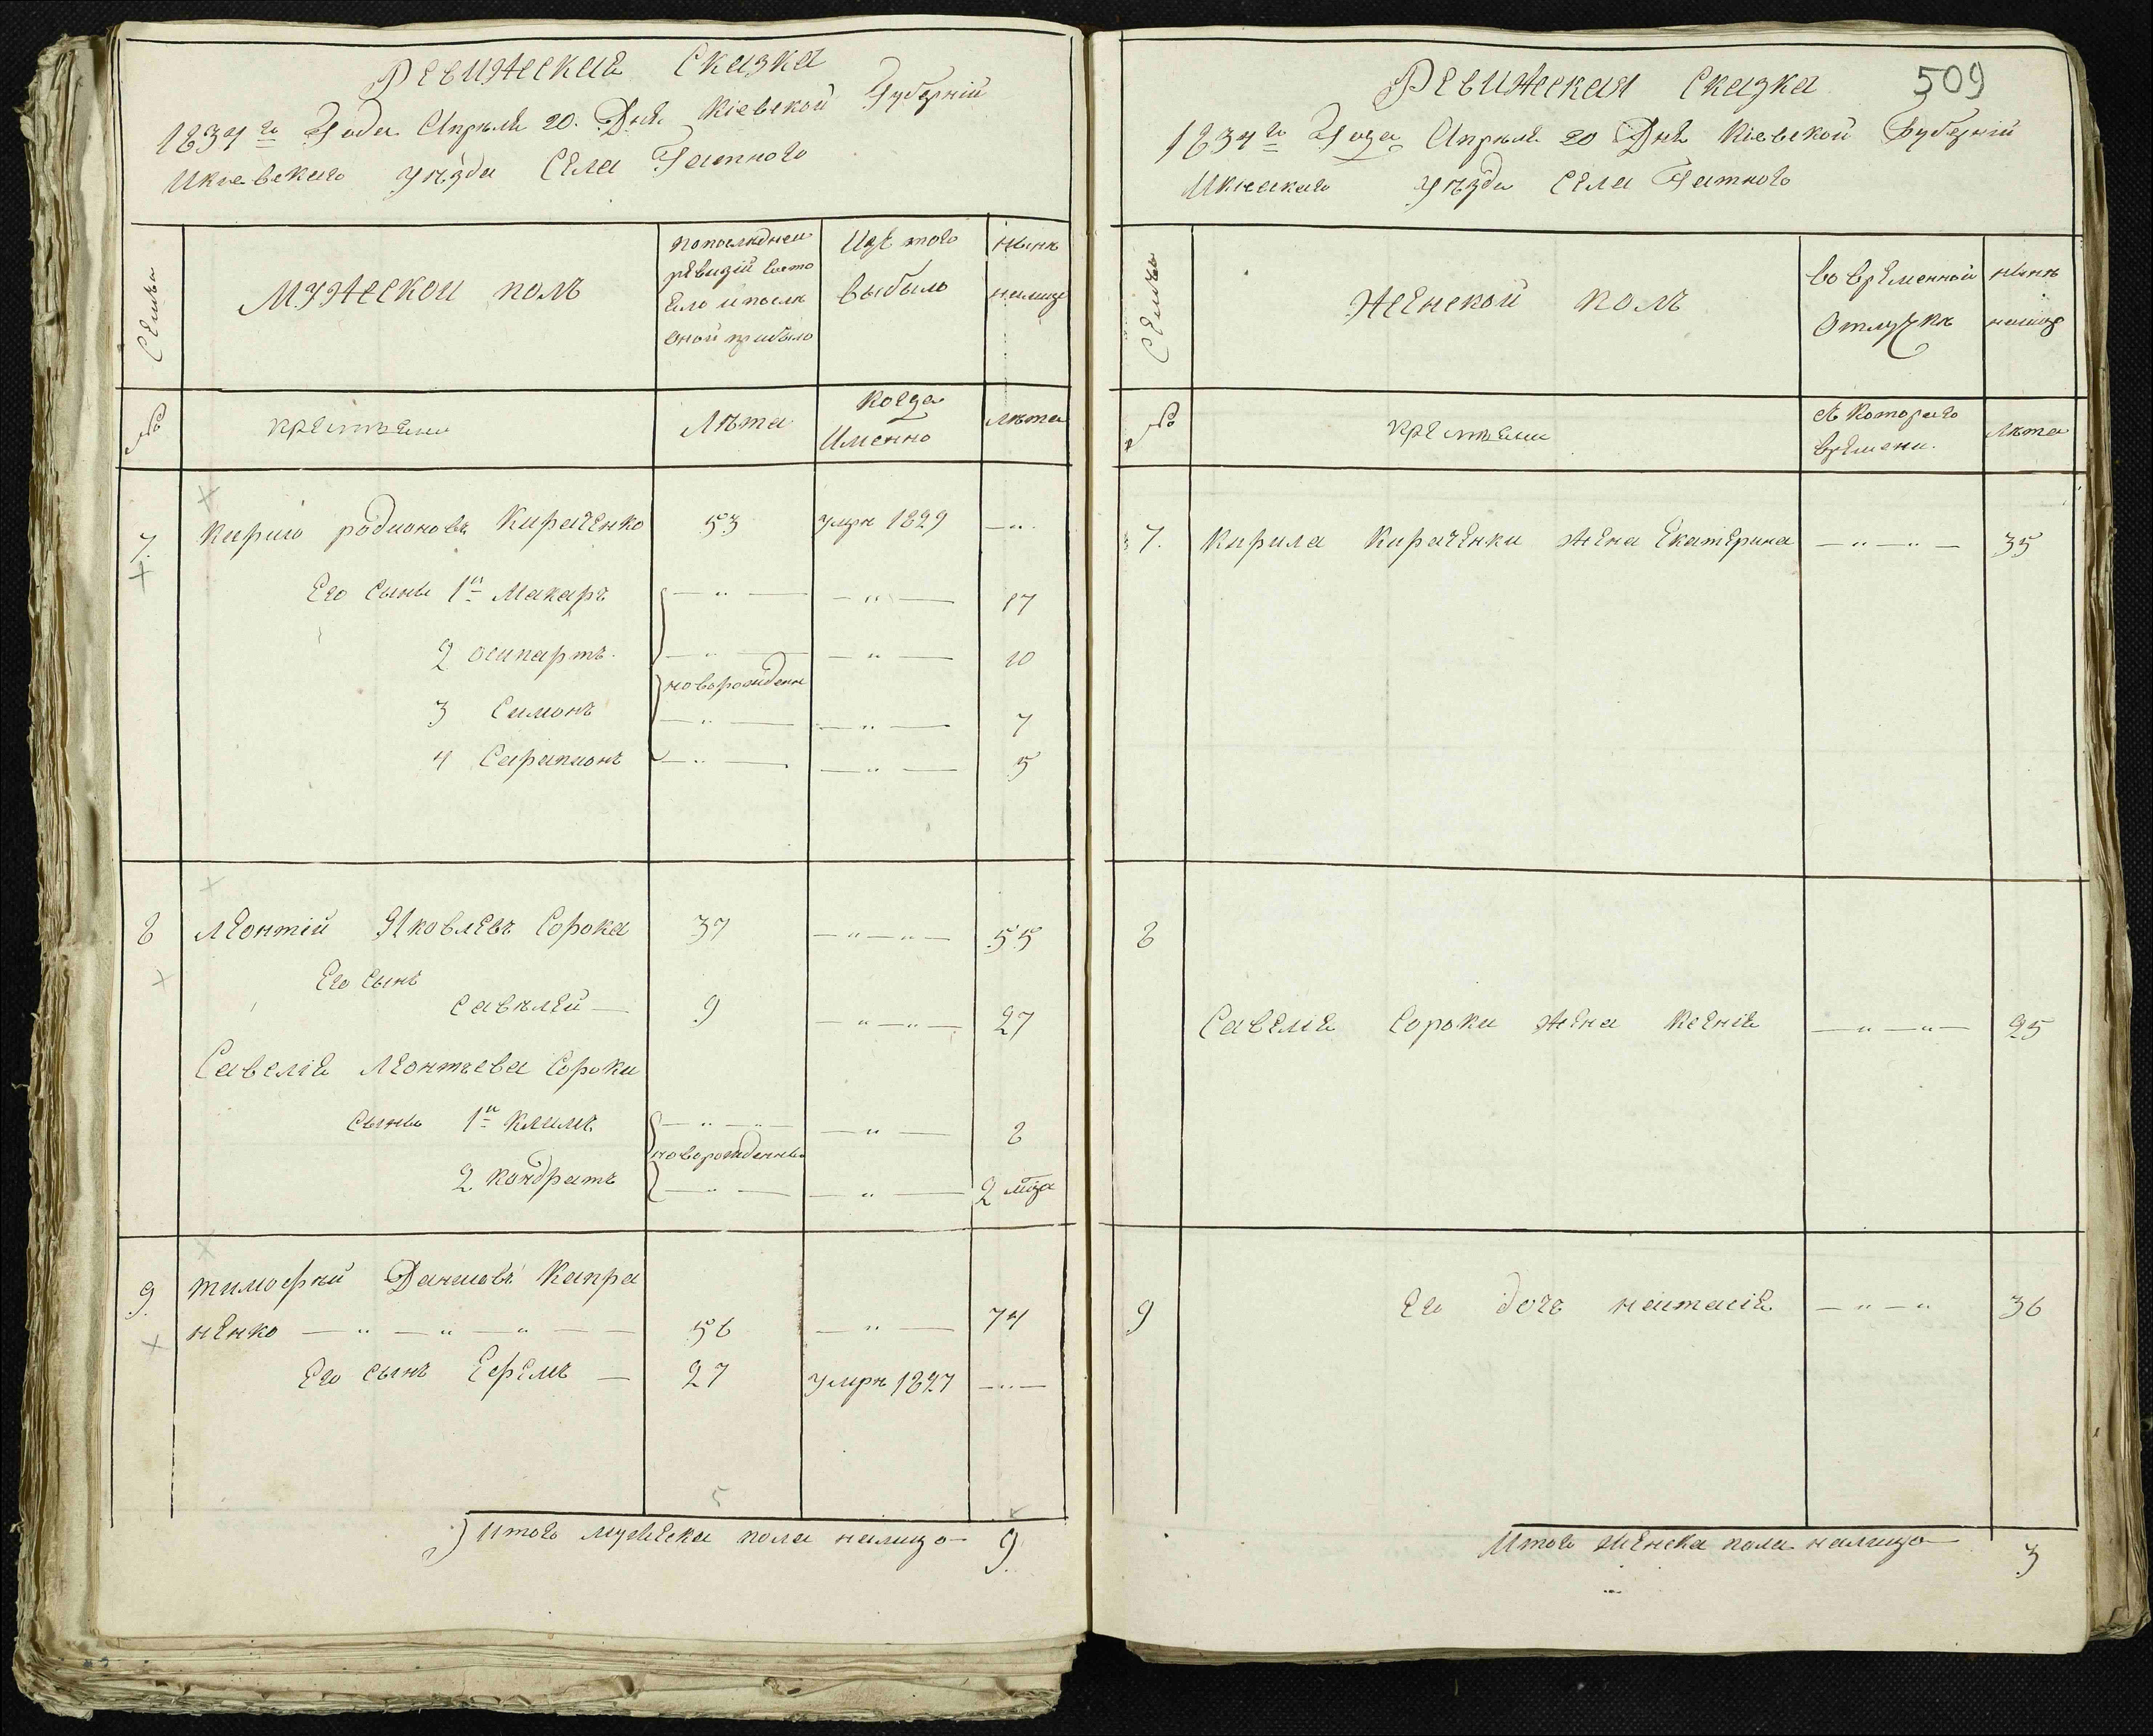 Ревижская Сказка
1834го Года Апреля 20. Дня Кіевской Губерніи
Икіевскаго уѣзда Села Гатного
Семьи
Мужеской полъ
по последней
ревизіи состо
яло и послѣ
оной прибыло
Изъ того
выбыло
нынѣ
налицо
№
крестьяни
Лѣта
Когда
Именно
Лѣта
7. Кирило родионовъ Кираченко 53 умре 1829 — " —
Его сыны 1й Макаръ — " — — " — 17
2 осипартъ — " — — " — 10
новорожденн
3 Симонъ — " — — " — 7
4 Сарапионъ — " — — " — 5
8 Леонтій Яковлевъ Сорока 37 — " — " — 55
Его сынъ
Савелей — 9 — " — " — 27
Савелія Леонтьева Сороки
сыны 1й Климъ — " — " — — " — 8
новорожденны
2 Кондратъ — " — — " — 2 мца
9 тимофѣй Даниловъ Капра
ненко — " — " — " — — 56 — " — 74
Его сынъ Ефремъ — 27 умре 1827 — " —
Итого мужеска пола налицо — 9
509
Ревижская Сказка
1834го Года Апреля 20 Дня Кіевской Губерніи
Икіевскаго уѣзда Села Гатного
Семьи
Женской полъ
во временной
отлучкѣ
нынѣ
налицо
№
крестьяни
съ котораго
времени.
Лѣта
7. Кирила Кираченки жена Екатерина — " — " — 35
8
Савелія Сороки жена Ксенія — " — " — 25
9 Его дочь настасія — " — " 36
Итого женска пола налицо — 3